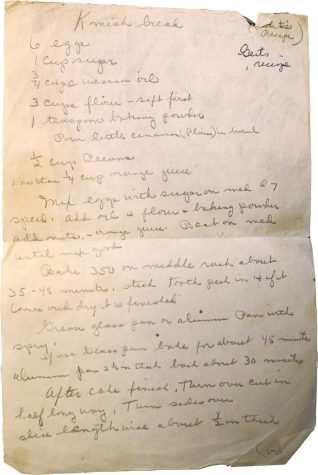 Kmish break
(Gertie's
Recipe)
Gert's
recipe
6 eggs
1 cup sugar
3/4 cups wesson oil
3 cups flour - sift first
1 teaspoon baking powder
little cinamon (Plain) in bowl
1/2 cup Pecans
1/4 cup orange juice
Mix eggs with sugar on med #7
speed. Add oil & flour & baking powder
Add nuts, - orange juice. Beat on med
until mix good
Bake 350 on middle rack about
35-45 minutes. stick tooth pick in & if it
comes out dry it is finished
Grease glass pan or alumium Pan with
spry.
I use Glass pan bake for about 45 minutes
alumium pan bake about 30 minutes
After cake finish, Turn over cut in
half long way, Turn sides over
slice lengthwise about 1/2 in thick
(over